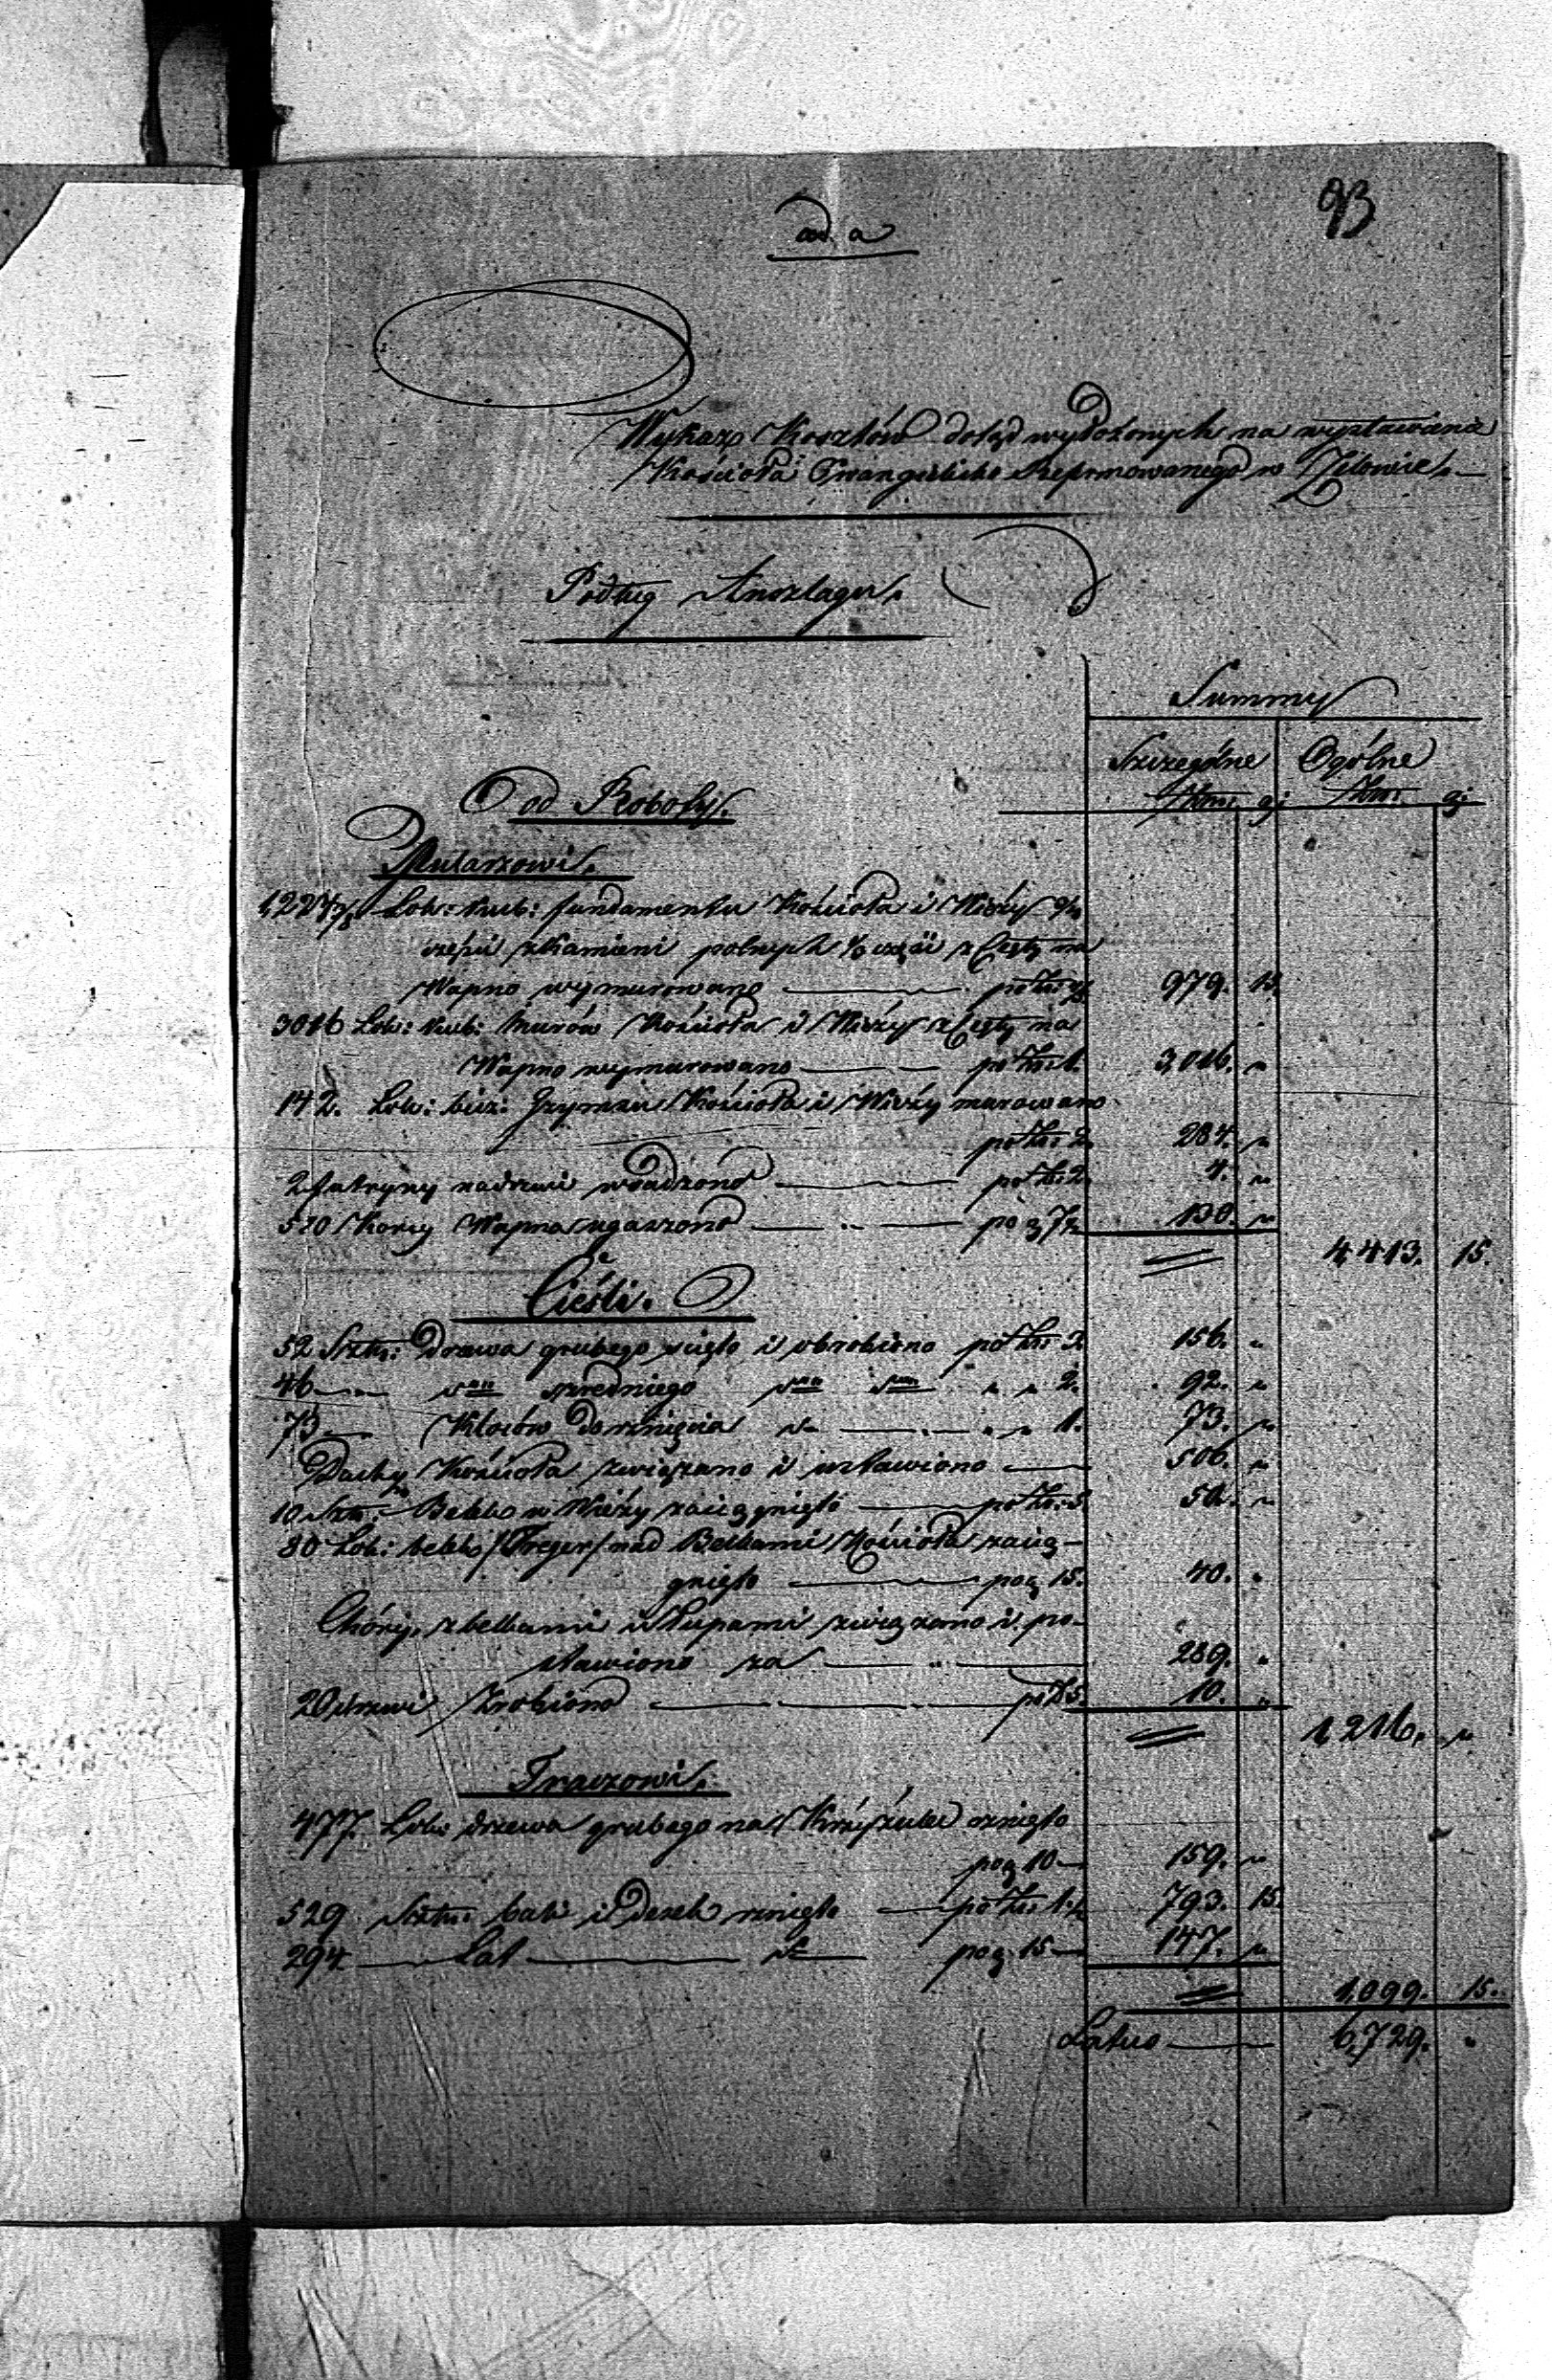 93
ad a
Wykaz Kosztów dotąd wyłożonych na wystawienie
Kościoła Ewangelicko Reformowanego w Zelowie.
Podług Anszlagu.
Summy
Szczególne Ogólne
Od Roboty.
Mularzowi.
Łok: kub: fundamentu Kościoła i Wieży
części z kamieni polnych 1/3 części z Cegły na
Wapno wymurowano 979. 15.
3016 Łok: kub: Murów Kościoła i Wieży z Cegły na
Wapno wymurowano po Złp: 1. 3,016. "
142. Łok: bież: Gzymsu Kościoła i Wieży murowano
po Złp: 2. 284. "
2 futryny nadrzwi wsadzono po Zł: 2. 4. "
520 Korcy Wapna ugaszono po g 7½ 130. "
4,413. 15.
Cieśli.
52 Sztu: Drzewa grubego ścięto i obrobiono po Złp: 3. 156. "
46 szredniego " " 2. 92. "
73 Kloców do rznięcia " " 1. 73. "
Dachy Kościoła związano i ustawiono 506. "
10 Sztu: Belek w Wieży zaciągnięto po Złp: 5. 50. "
80 Łok: belek /Treger/ nad Belkami Kościoła zacią-
gnięto po g 15. 40. "
Chóry, z belkami i słupami związano i po-
stawiono za 289. "
2 drzwi zrobiono po Zł 5. 10. "
1,216. "
Traczowi.
477. Łok: drzewa grubego na rznięto
po g 10 159. "
529 Sztu: bali i Desek rznięto po Złp: 1½ 793. 15.
294 Łat po g 15 147. "
1,099. 15.
Latus 6,729. "